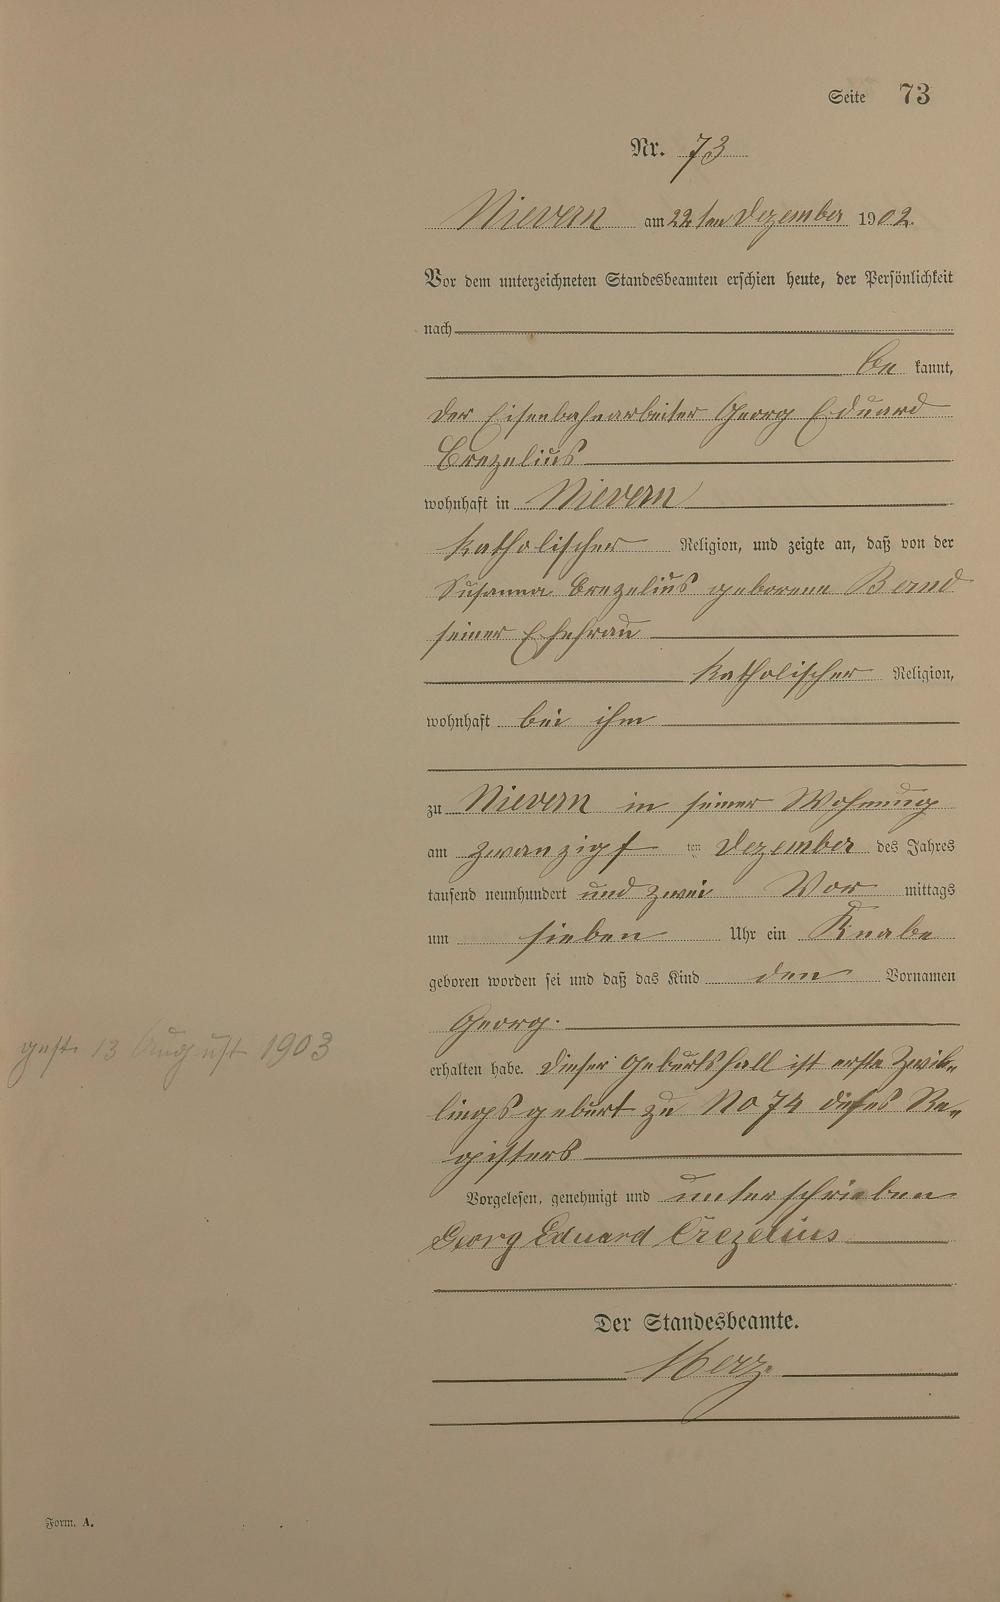 Seite 73
Nr. 73
Nievern am 22ten Dezember 1902.
Vor dem unterzeichneten Standesbeamten erschien heute, der Persönlichkeit
nach
be kannt,
der Eisenbahnarbeiter Georg Eduard
Crezelius
wohnhaft in Nievern
katholischer Religion, und zeigte an, daß von der
Susanna Crezelius geborene Band
seiner Ehefrau
katholischer Religion,
wohnhaft bei ihm
zu Nievern in seiner Wohnung
am zwanzigs ten Dezember des Jahres
tausend neunhundert und zwei Vor mittags
um sieben Uhr ein Knabe
geboren worden sei und daß das Kind den Vornamen
Georg.
gest. 13 August 1903
erhalten habe. Dieser Geburtsfall ist erste Zwil-
lingsgeburt zu No 74 dieses Re-
gisters
Vorgelesen, genehmigt und unterschrieben
Georg Eduard Crezelius
Der Standesbeamte.
Merz.
Form. A.